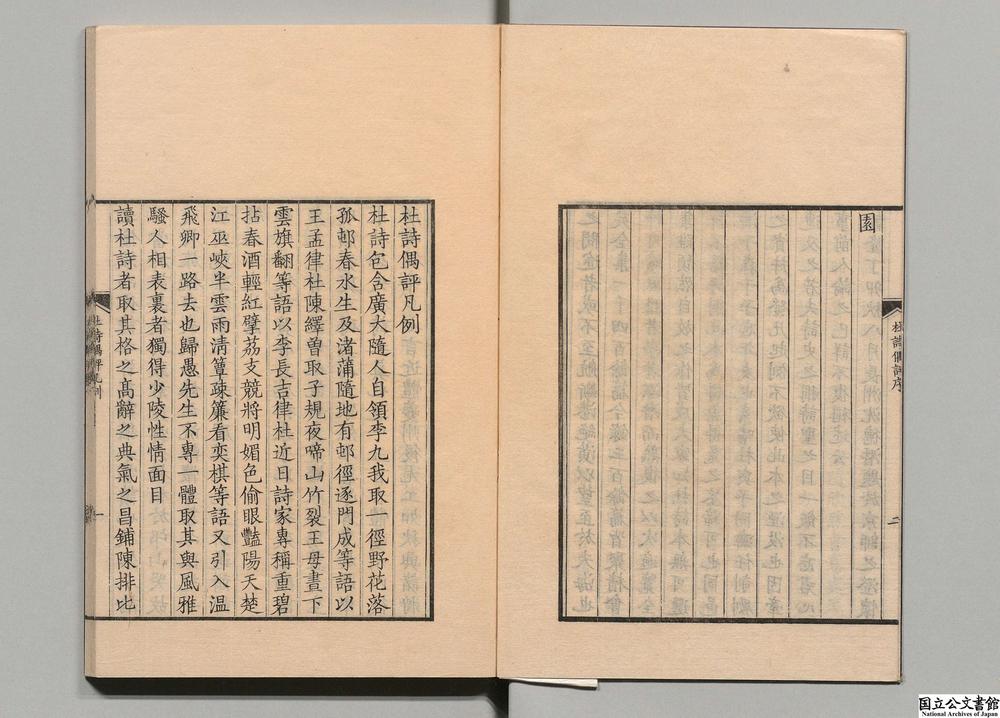 園
杜詩偶評序
二
杜詩偶評凡例
杜詩包含廣大隨人自領李九我取一徑野花落
孤邨春水生及渚蒲隨地有邨徑逐門成等語以
王孟律杜陳繹曽取子規夜啼山竹裂王母晝下
雲旗翻等語以李長吉律杜近日詩家專稱重碧
拈春酒輕紅擘荔支競將明媚色偷眼豔陽天楚
江巫峽半雲雨清簟疎簾看奕棋等語又引入温
飛卿一路去也歸愚先生不專一體取其與風雅
騷人相表裏者獨得少陵性情面目
讀杜詩者取其格之高辭之典氣之昌鋪陳排比
杜詩偶評凡例
一
国立公文書館
National Archives of Japan